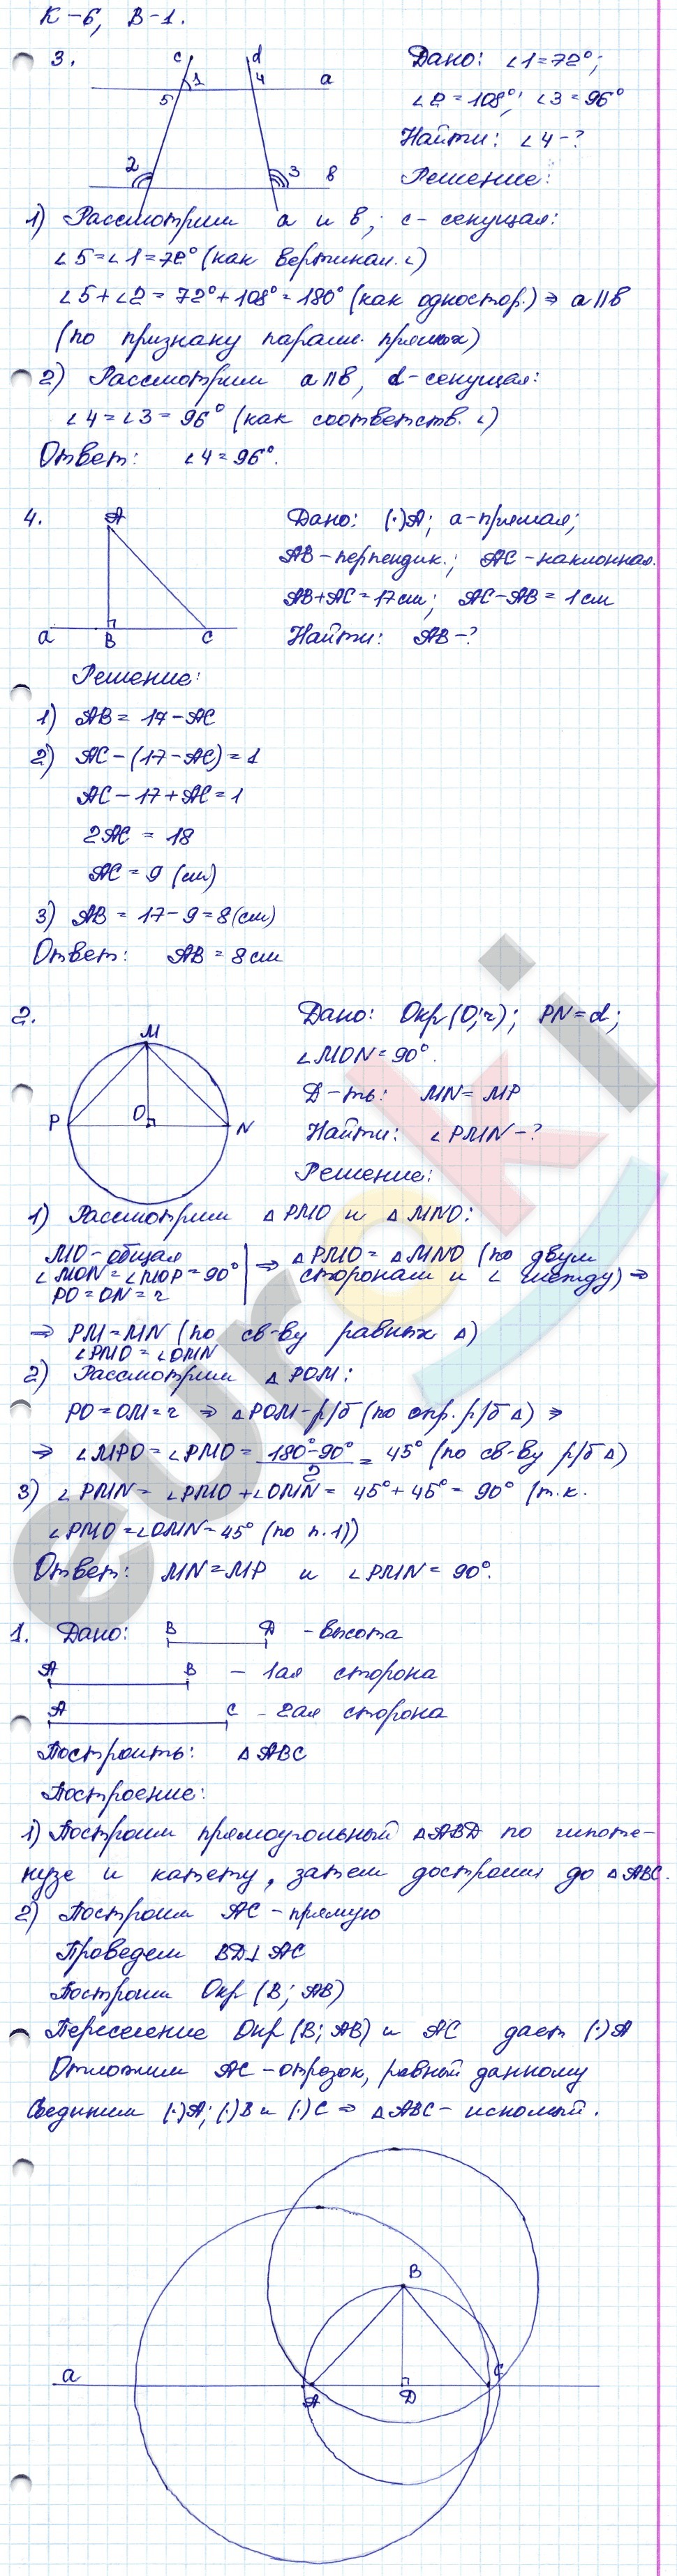 К-6, В-1.
3.
c
d
1
4
a
5
2
3
в
Дано: ∠1=72°;
∠2=108°; ∠3=96°
Найти: ∠4-?
Решение:
1) Рассмотрим a и в, c-секущая:
∠5=∠1=72° (как вертикал. ∠)
∠5+∠2=72°+108°=180° (как одностор.) ⇒ a||в
(по признаку паралл. прямых)
2) Рассмотрим a||в, d-секущая:
∠4=∠3=96° (как соответств. ∠)
Ответ: ∠4=96°.
4.
A
a
B
C
Дано: (·)A; a-прямая;
AB-перпендик.; AC-наклонная.
AB+AC=17см; AC-AB=1см
Найти: AB-?
Решение:
1) AB=17-AC
2) AC-(17-AC)=1
AC-17+AC=1
2AC=18
AC=9 (см)
3) AB=17-9=8(см)
Ответ: AB=8см
2.
M
P
O
N
Дано: Окр(O;r); PN=d;
∠MON=90°.
Д-ть: MN=MP
Найти: ∠PMN-?
Решение:
1) Рассмотрим △PMO и △MNO:
MO-общая
∠MON=∠MOP=90°
PO=ON=r
⇒ △PMO=△MNO (по двум
сторонам и ∠ между) ⇒
⇒ PM=MN (по св-ву равных △)
∠PMO=∠OMN
2) Рассмотрим △POM:
PO=OM=r ⇒ △POM-р/б (по опр. р/б △) ⇒
⇒ ∠MPO=∠PMO=(180°-90°)/2=45° (по св-ву р/б △)
3) ∠PMN=∠PMO+∠OMN=45°+45°=90° (т.к.
∠PMO=∠OMN=45° (по п.1))
Ответ: MN=MP и ∠PMN=90°.
1. Дано: B D - высота
A B - 1ая сторона
A C - 2ая сторона
Построить: △ABC
Построение:
1) Построим прямоугольный △ABD по гипоте-
нузе и катету, затем достроим до △ABC.
2) Построим AC-прямую
Проведем BD⊥AC
Построим Окр(B;AB)
Пересечение Окр(B;AB) и AC дает (·)A
Отложим AC-отрезок, равный данному
Соединим (·)A; (·)B и (·)C ⇒ △ABC-искомый.
B
a
A
D
C
euroki